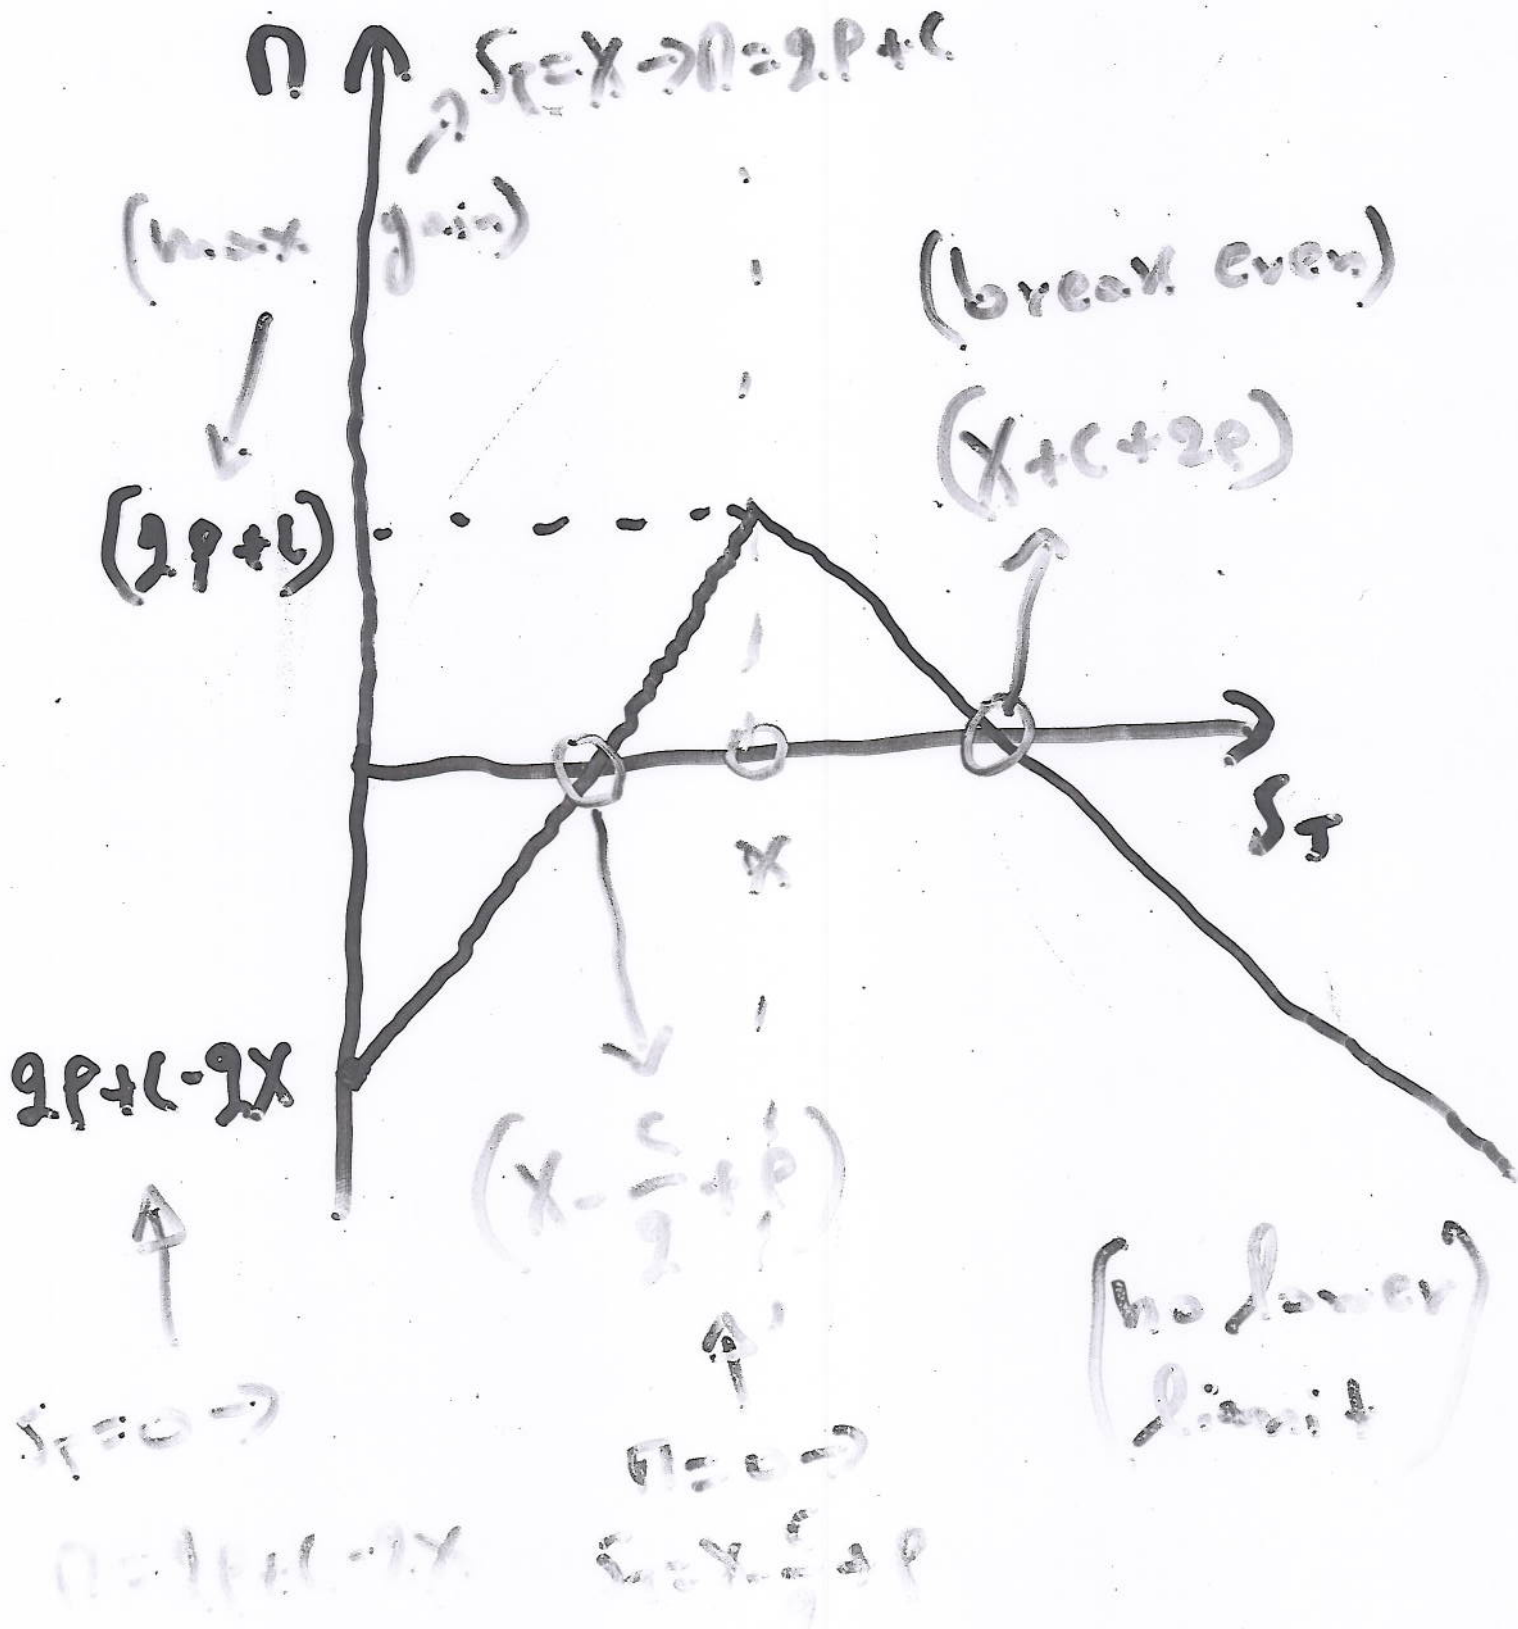 Π
S_T = X → Π = 2P + C
(max gain)
(break even)
(X + C + 2P)
(2P + C)
S_T
X
2P + C - 2X
(X - C/2 + P)
(no lower
limit)
S_T = 0 →
Π = 2P + C - 2X
Π = 0 →
S_T = X - C/2 + P